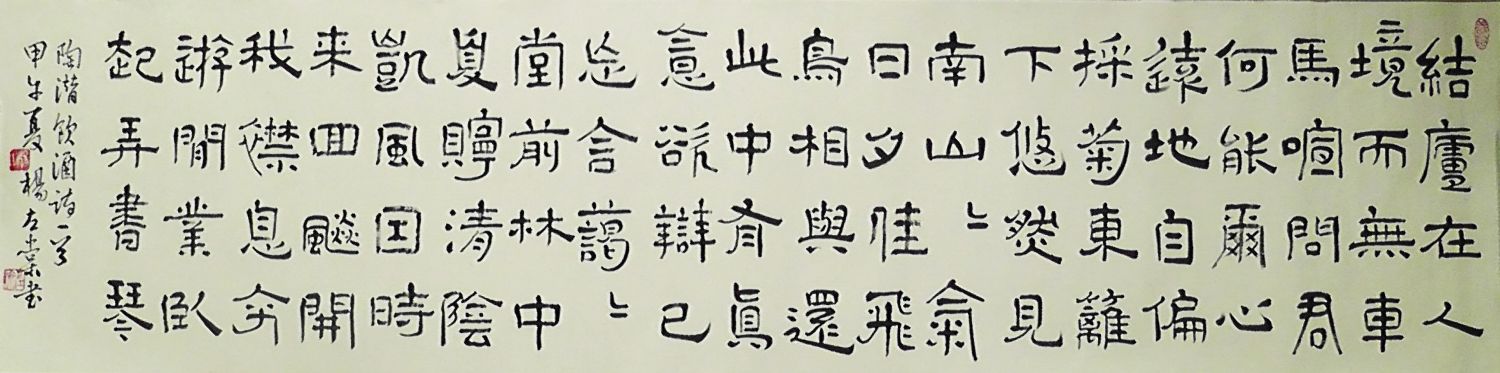 結廬在人
境而無車
馬喧問君
何能爾心
遠地自偏
採菊東籬
下悠然見
南山〻氣
日夕佳飛
鳥相與還
此中有眞
意欲辯已
忘言藹〻
堂前林中
夏貯清陰
凱風因時
来回飈開
我襟息交
遊閒業臥
起弄書琴
陶潛飲酒詩一首
甲午夏 楊 书